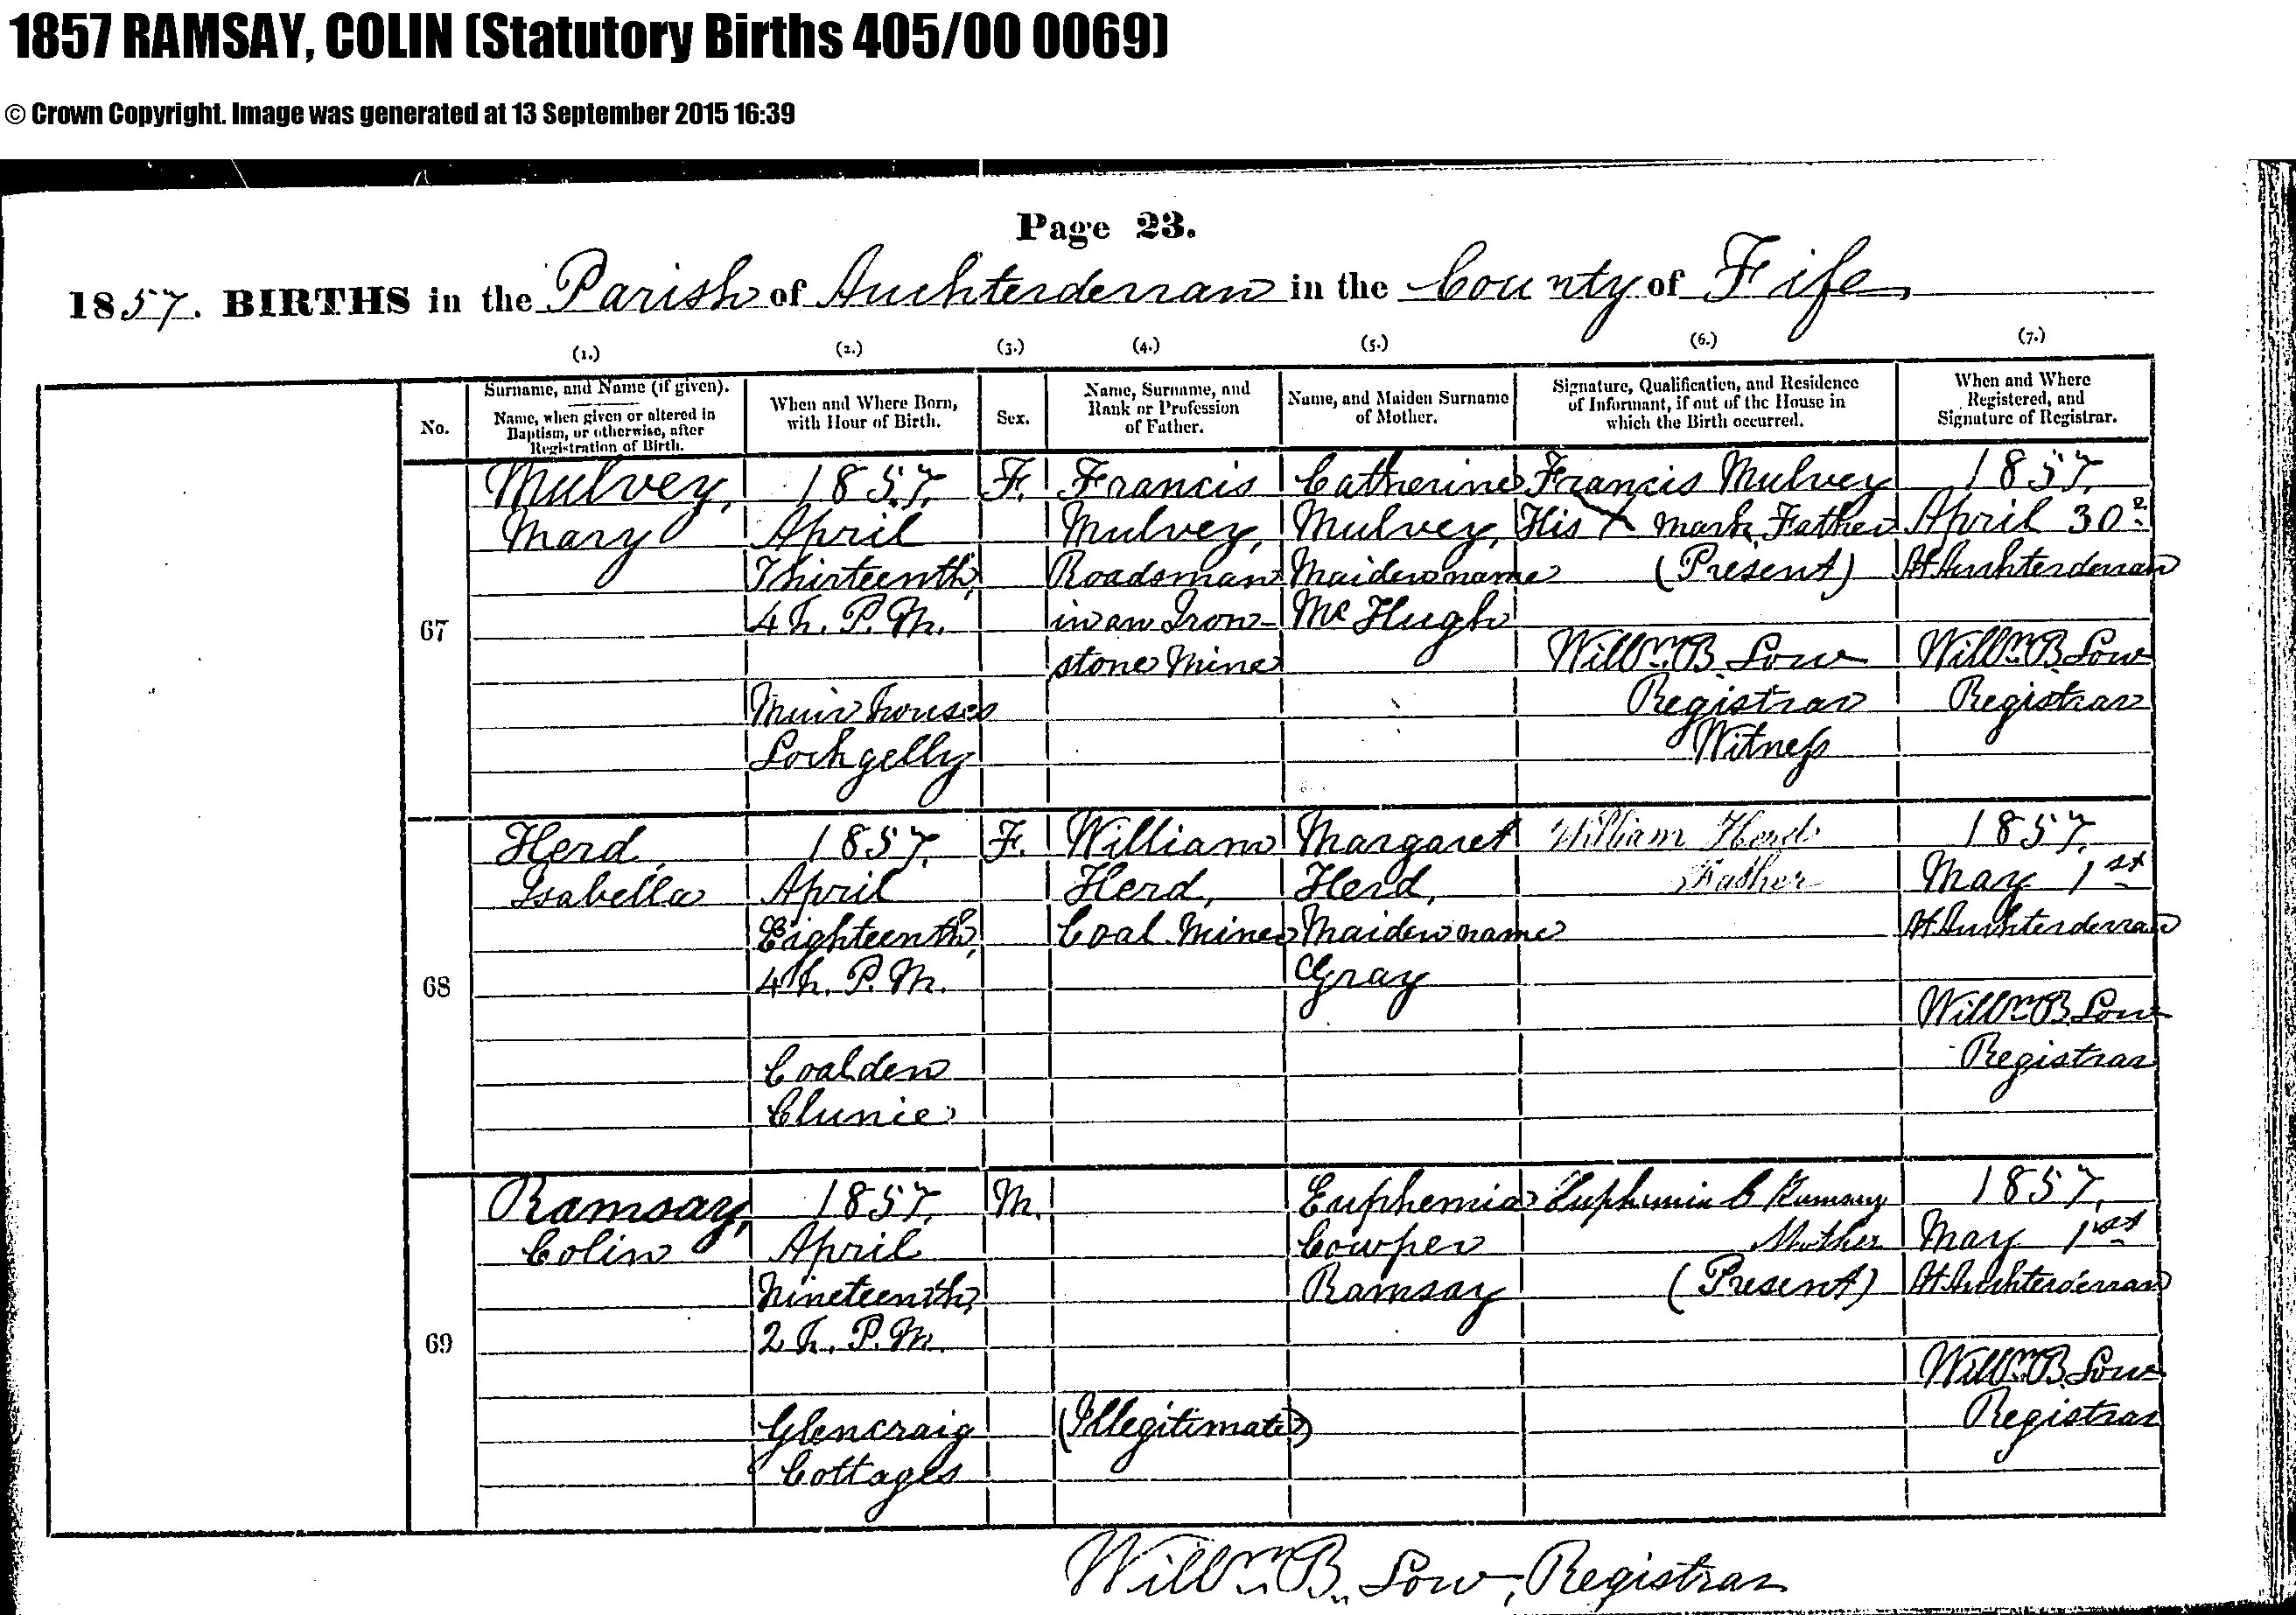 1857 RAMSAY, COLIN (Statutory Births 405/00 0069)
© Crown Copyright. Image was generated at 13 September 2015 16:39
Page 23.
1857. BIRTHS in the Parish of Auchterderran in the County of Fife
(1.) (2.) (3.) (4.) (5.) (6.) (7.)
No.
Surname, and Name (if given).
Name, when given or altered in
Baptism, or otherwise, after
Registration of Birth.
When and Where Born,
with Hour of Birth.
Sex.
Name, Surname, and
Rank or Profession
of Father.
Name, and Maiden Surname
of Mother.
Signature, Qualification, and Residence
of Informant, if out of the House in
which the Birth occurred.
When and Where
Registered, and
Signature of Registrar.
67
Mulvey,
Mary
1857,
April
Thirteenth,
4 h. P.M.
Muirhouses
Lochgelly
F.
Francis
Mulvey,
Roadsman
in an Iron-
stone Mine
Catherine
Mulvey,
Maiden name
McHugh
Francis Mulvey
His X mark Father
(Present)
Willm. B. Low
Registrar
Witness
1857,
April 30th
At Auchterderran
Willm. B. Low
Registrar
68
Herd,
Isabella
1857,
April
Eighteenth,
4 h. P.M.
Coalden
Clunie
F.
William
Herd,
Coal Miner
Margaret
Herd,
Maiden name
Gray
William Herd
Father
1857,
May 1st
At Auchterderran
Willm. B. Low
Registrar
69
Ramsay,
Colin
1857,
April
Nineteenth,
2 h. P.M.
Glencraig
Cottages
M.
(Illegitimate)
Euphemia
Cowper
Ramsay
Euphemia C Ramsay
Mother
(Present)
1857,
May 1st
At Auchterderran
Willm. B. Low
Registrar
Willm. B. Low, Registrar